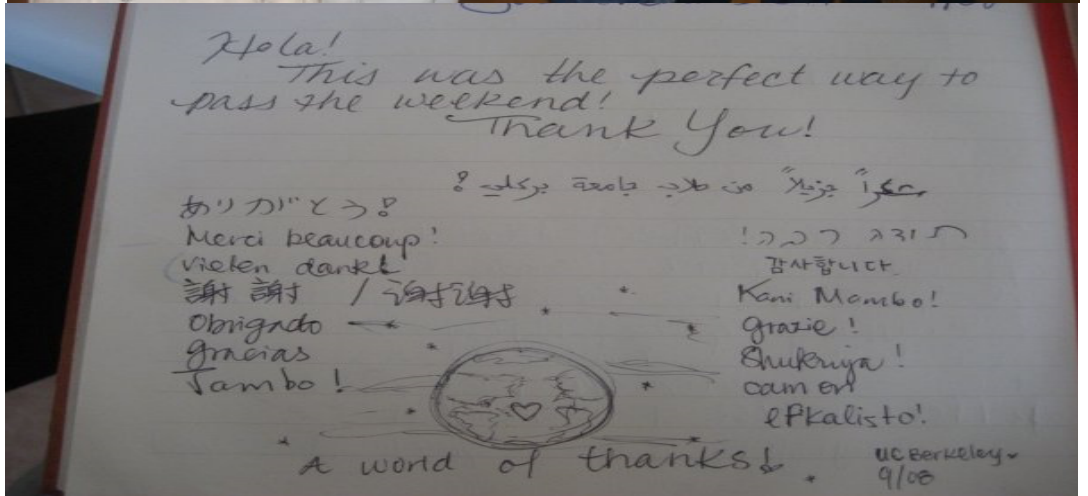 Hola!
This was the perfect way to
pass the weekend!
Thank You!
شكراً جزيلاً من طلاب جامعة بركلي !
ありがとう!
Merci beaucoup!
vielen dank!
謝謝 / 谢谢
Obrigado
gracias
Jambo!
תודה רבה!
감사합니다
Kani Mambo!
grazie!
Shukriya!
cam on
efkalisto!
A world of thanks!
UC Berkeley
9/08